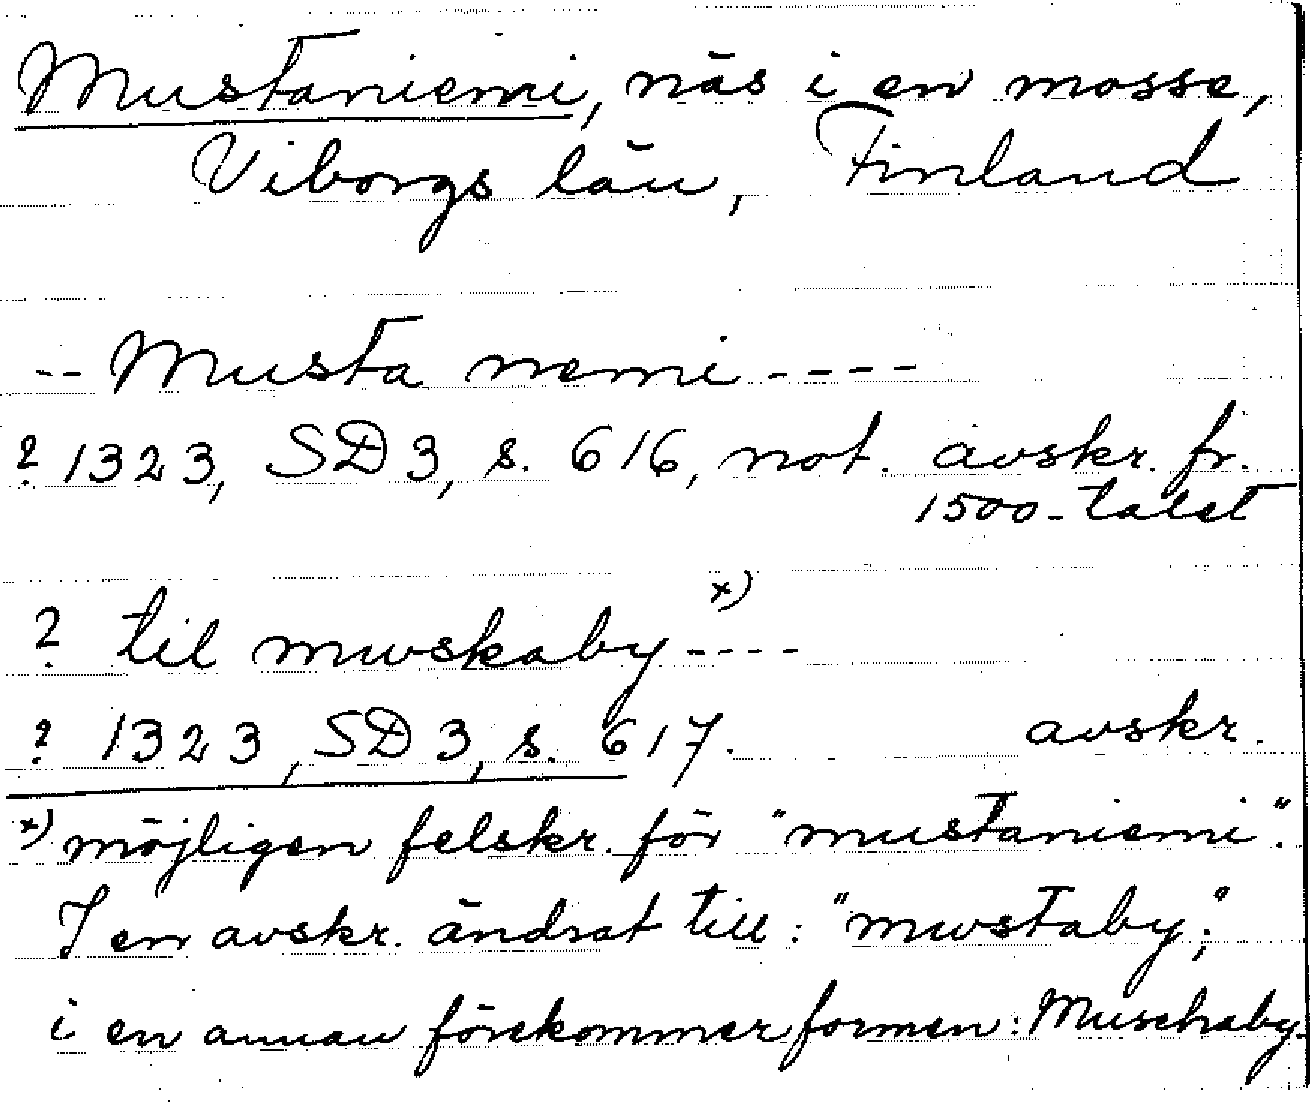 Mustaniemi, näs i en mosse,
Viborgs län, Finland
-- Musta nemi ----
? 1323, SD 3, s. 616, not. avskr. fr.
1500-talet
? til mwskaby x) ----
? 1323, SD 3, s. 617. avskr.
x) möjligen felskr. för "mustaniemi".
I en avskr. ändrat till: "mwstaby";
i en annan förekommer formen: Muschaby.